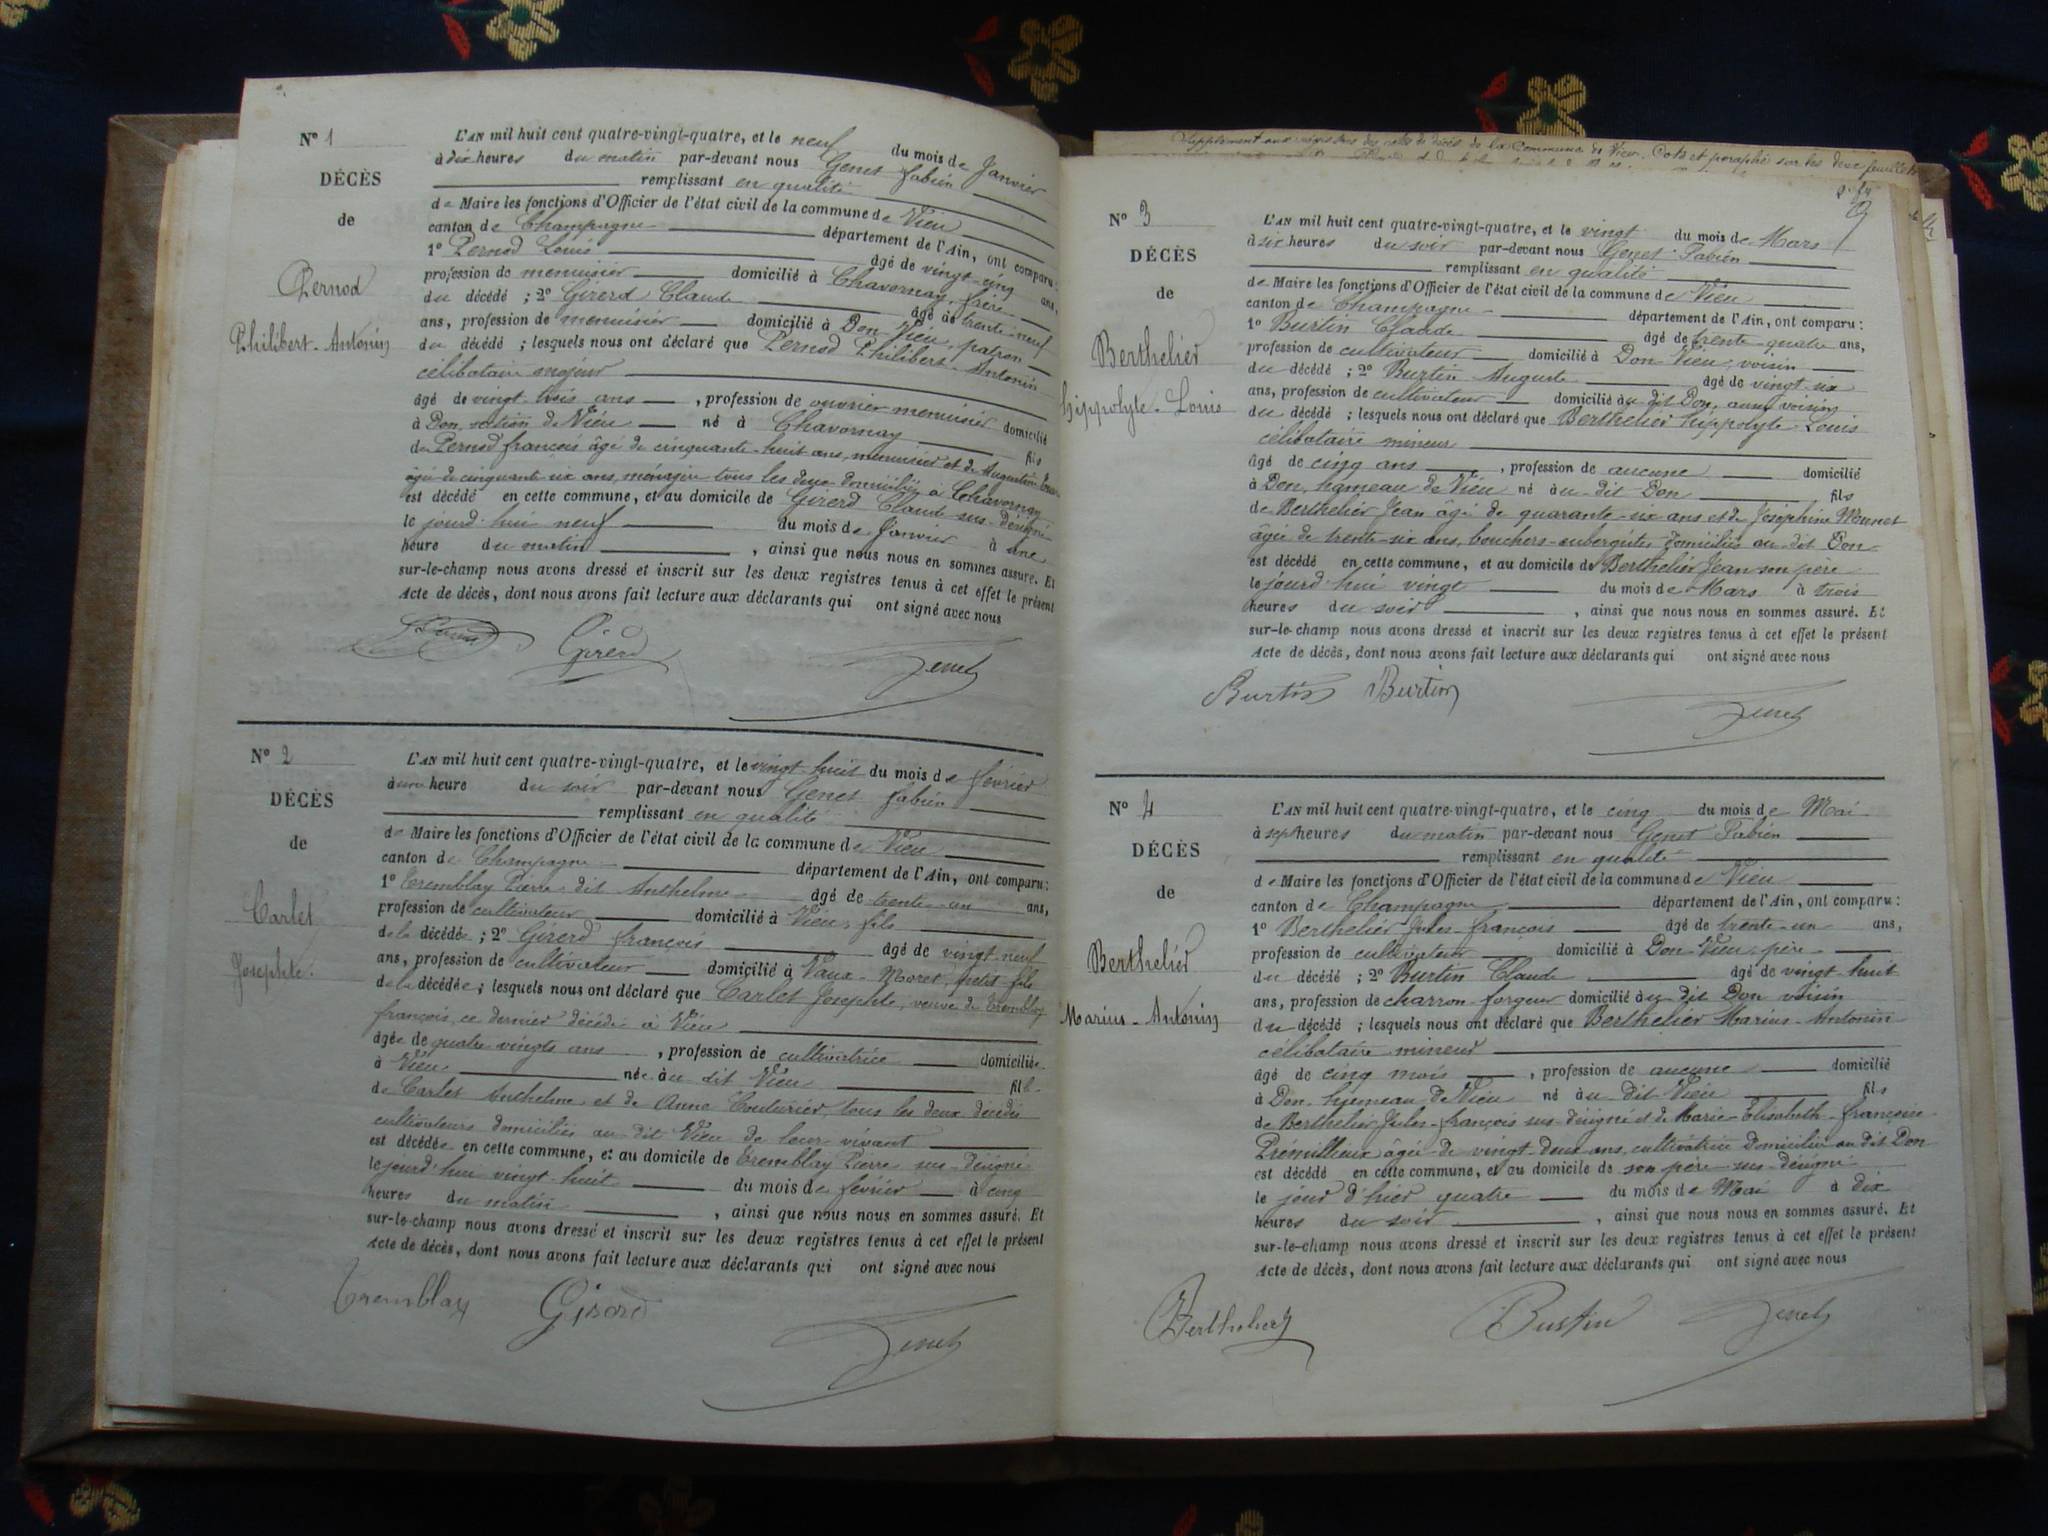 Nº 1
DÉCÈS
de
Pernod
Philibert-Antonin
L'AN mil huit cent quatre-vingt-quatre, et le neuf du mois de Janvier
à dix heures du matin par-devant nous Genet fabien
remplissant en qualité
de Maire les fonctions d'Officier de l'état civil de la commune de Vieu
canton de Champagne département de l'Ain, ont comparu:
1º Pernod Louis âgé de vingt-cinq ans,
profession de menuisier domicilié à Chavornay, frère
du décédé ; 2º Girerd Claude âgé de trente-neuf
ans, profession de menuisier domicilié à Don Vieu, patron
du décédé ; lesquels nous ont déclaré que Pernod Philibert-Antonin
célibataire majeur
âgé de vingt-trois ans , profession de ouvrier menuisier domicilié
à Don, section de Vieu né à Chavornay fils
de Pernod françois âgé de cinquante-huit ans, menuisier et de Augustine
âgée de cinquante six ans, ménagère tous les deux domiciliés à Chavornay
est décédé en cette commune, et au domicile de Girerd Claude sus-désigné
le jourd'hui neuf du mois de Janvier à une
heure du matin , ainsi que nous nous en sommes assuré. Et
sur-le-champ nous avons dressé et inscrit sur les deux registres tenus à cet effet le présent
Acte de décès, dont nous avons fait lecture aux déclarants qui ont signé avec nous
Girerd Genet
Nº 2
DÉCÈS
de
Carlet
Josephte.
L'AN mil huit cent quatre-vingt-quatre, et le vingt-huit du mois de février
à une heure du soir par-devant nous Genet fabien
remplissant en qualité
de Maire les fonctions d'Officier de l'état civil de la commune de Vieu
canton de Champagne département de l'Ain, ont comparu:
1º Tremblay Pierre dit Anthelme âgé de trente-un ans,
profession de cultivateur domicilié à Vieu, fils
de la décédée ; 2º Girerd françois âgé de vingt-neuf
ans, profession de cultivateur domicilié à Vaux-Moret, petit-fils
de la décédée ; lesquels nous ont déclaré que Carlet Josephte, veuve de Tremblay
françois, ce dernier décédé à Vieu
âgée de quatre vingts ans , profession de cultivatrice domiciliée
à Vieu née au dit Vieu fille
de Carlet Anthelme et de Anne Couturier, tous les deux décédés
cultivateurs domiciliés au dit Vieu de leur vivant
est décédée en cette commune, et au domicile de Tremblay Pierre sus-désigné
le jourd'hui vingt-huit du mois de février à cinq
heures du matin , ainsi que nous nous en sommes assuré. Et
sur-le-champ nous avons dressé et inscrit sur les deux registres tenus à cet effet le présent
Acte de décès, dont nous avons fait lecture aux déclarants qui ont signé avec nous
Tremblay Girerd Genet
Supplément aux registres des actes de décès de la Commune de Vieu. Coté et paraphé sur les deux feuillets
Nº 3
DÉCÈS
de
Berthelier
hippolyte-Louis
L'AN mil huit cent quatre-vingt-quatre, et le vingt du mois de Mars
à six heures du soir par-devant nous Genet Fabien
remplissant en qualité
de Maire les fonctions d'Officier de l'état civil de la commune de Vieu
canton de Champagne département de l'Ain, ont comparu:
1º Burtin Claude âgé de trente-quatre ans,
profession de cultivateur domicilié à Don Vieu, voisin
du décédé ; 2º Burtin Auguste âgé de vingt-six
ans, profession de cultivateur domicilié au dit Don, aussi voisin
du décédé ; lesquels nous ont déclaré que Berthelier hippolyte Louis
célibataire mineur
âgé de cinq ans , profession de aucune domicilié
à Don, hameau de Vieu né au dit Don fils
de Berthelier Jean âgé de quarante-six ans et de Joséphine Monnet
âgée de trente-six ans, bouchers-aubergistes, domiciliés au dit Don
est décédé en cette commune, et au domicile de Berthelier Jean son père
le jourd'hui vingt du mois de Mars à trois
heures du soir , ainsi que nous nous en sommes assuré. Et
sur-le-champ nous avons dressé et inscrit sur les deux registres tenus à cet effet le présent
Acte de décès, dont nous avons fait lecture aux déclarants qui ont signé avec nous
Burtin Burtin Genet
Nº 4
DÉCÈS
de
Berthelier
Marius-Antonin
L'AN mil huit cent quatre-vingt-quatre, et le cinq du mois de Mai
à sept heures du matin par-devant nous Genet Fabien
remplissant en qualité
de Maire les fonctions d'Officier de l'état civil de la commune de Vieu
canton de Champagne département de l'Ain, ont comparu:
1º Berthelier Jules-françois âgé de trente-un ans,
profession de cultivateur domicilié à Don Vieu, père
du décédé ; 2º Burtin Claude âgé de vingt-huit
ans, profession de charron-forgeur domicilié au dit Don voisin
du décédé ; lesquels nous ont déclaré que Berthelier Marius-Antonin
célibataire mineur
âgé de cinq mois , profession de aucune domicilié
à Don, hameau de Vieu né au dit Vieu fils
de Berthelier Jules-françois sus-désigné et de Marie-Elisabeth-françoise
Prémillieux âgée de vingt-deux ans, cultivatrice domiciliée au dit Don
est décédé en cette commune, et au domicile de son père sus-désigné
le jour d'hier quatre du mois de Mai à dix
heures du soir , ainsi que nous nous en sommes assuré. Et
sur-le-champ nous avons dressé et inscrit sur les deux registres tenus à cet effet le présent
Acte de décès, dont nous avons fait lecture aux déclarants qui ont signé avec nous
Berthelier Burtin Genet